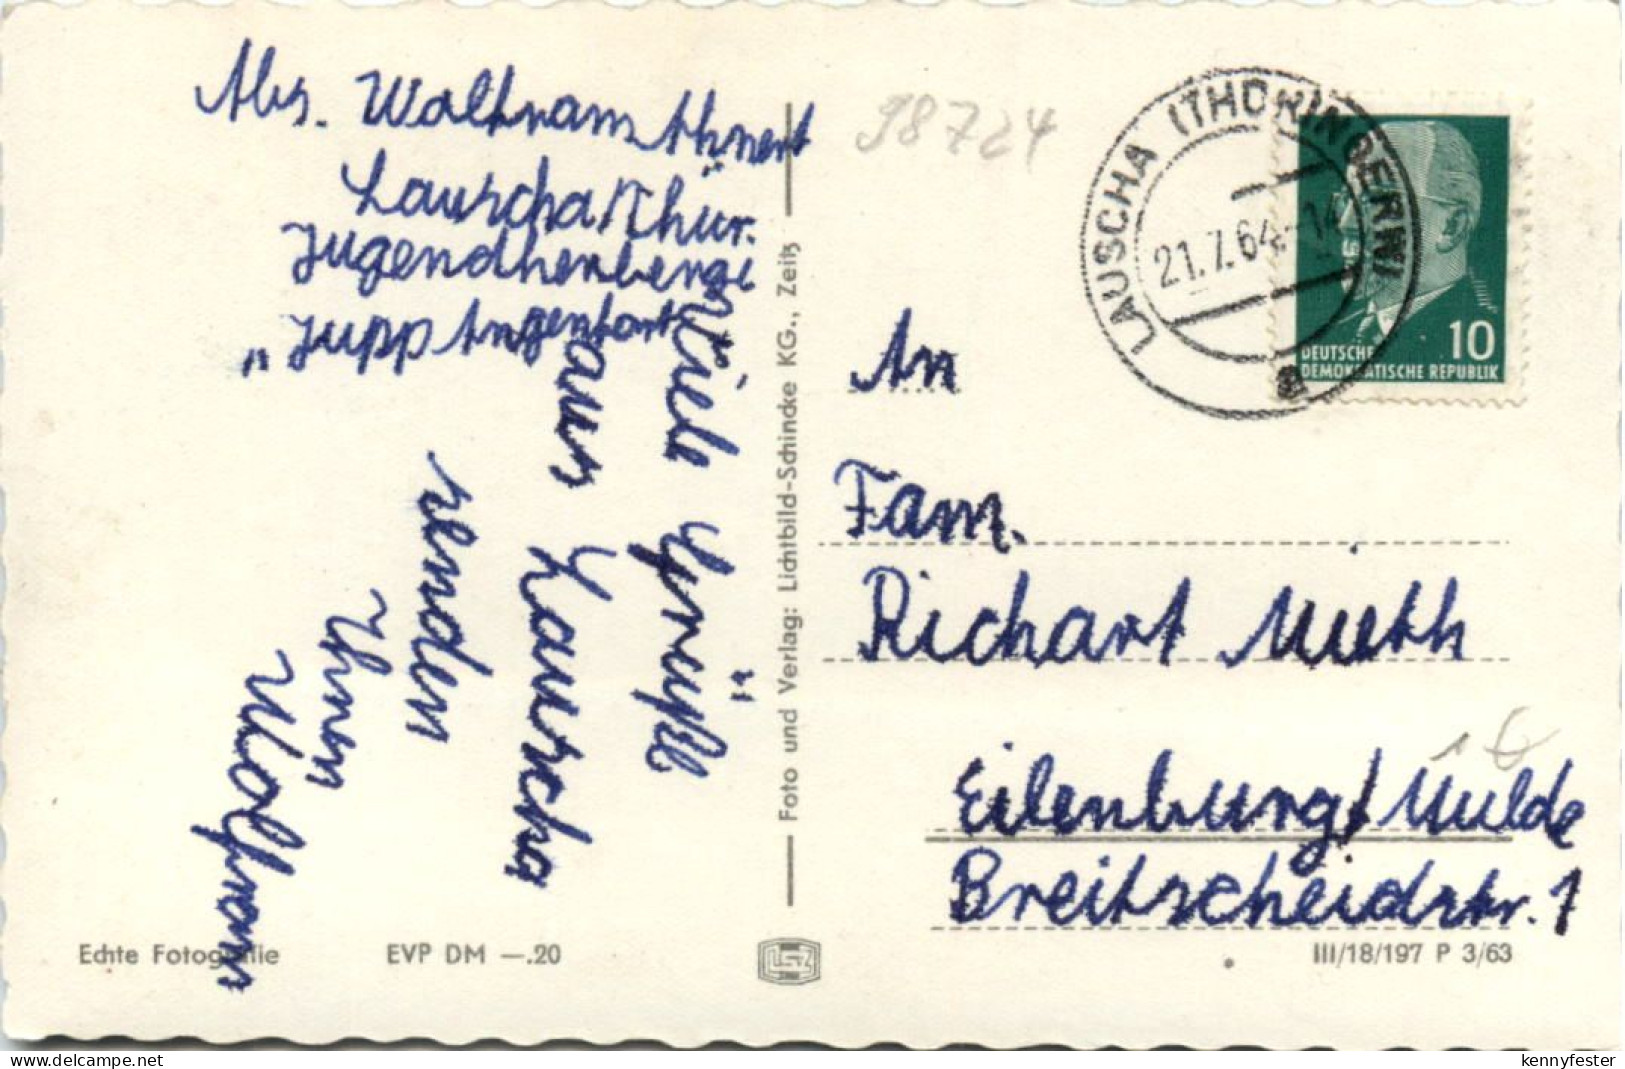 Abs. Waltram Ahnert
Lauscha/Thür.
Jugendherberge
"Jupp Angenfort"
Viele Grüße
aus Lauscha
senden
Ihnen
Wolfram
Foto und Verlag: Lichtbild-Schincke KG., Zeitz
Echte Fotografie
EVP DM —.20
98724
LAUSCHA (THÜRINGERW)
21.7.64-14
a
10
DEUTSCHE
DEMOKRATISCHE REPUBLIK
An
Fam.
Richart Mieth
Eilenburg/Mulde
Breitscheidstr. 1
III/18/197 P 3/63
delcampe.net
kennyfester